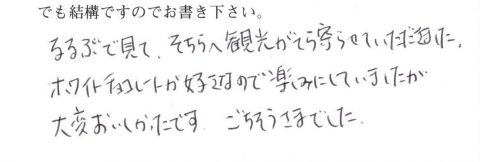 でも結構ですのでお書き下さい。
るるぶで見て、そちらへ観光がてら寄らせていただきました。
ホワイトチョコレートが好きなので楽しみにしていましたが
大変おいしかったです。ごちそうさまでした。